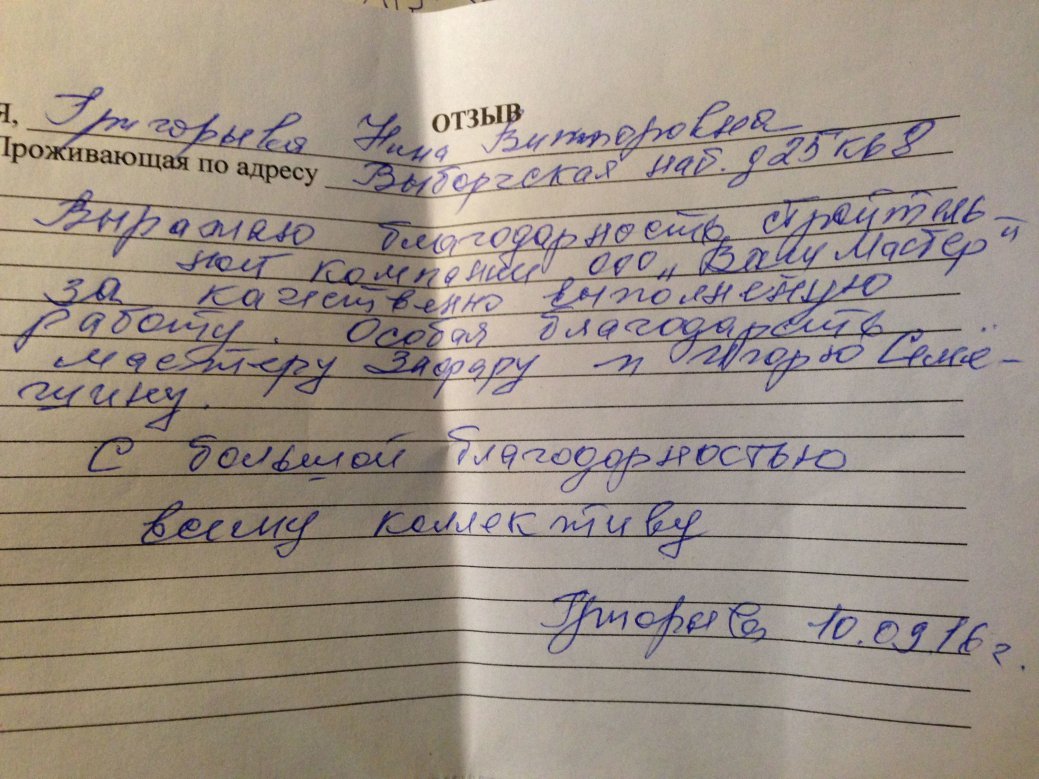 ОТЗЫВ
Я, Григорьева Нина Викторовна
Проживающая по адресу Выборгская наб. д 25 кв 8
Выражаю благодарность строитель-
ной компании ООО „Ваш Мастер"
за качественно выполненую
работу. Особая благодарсть
мастеру Зафару и Игорю Семё-
шину.
С большой благодарностью
всему коллективу
10.09 16 г.